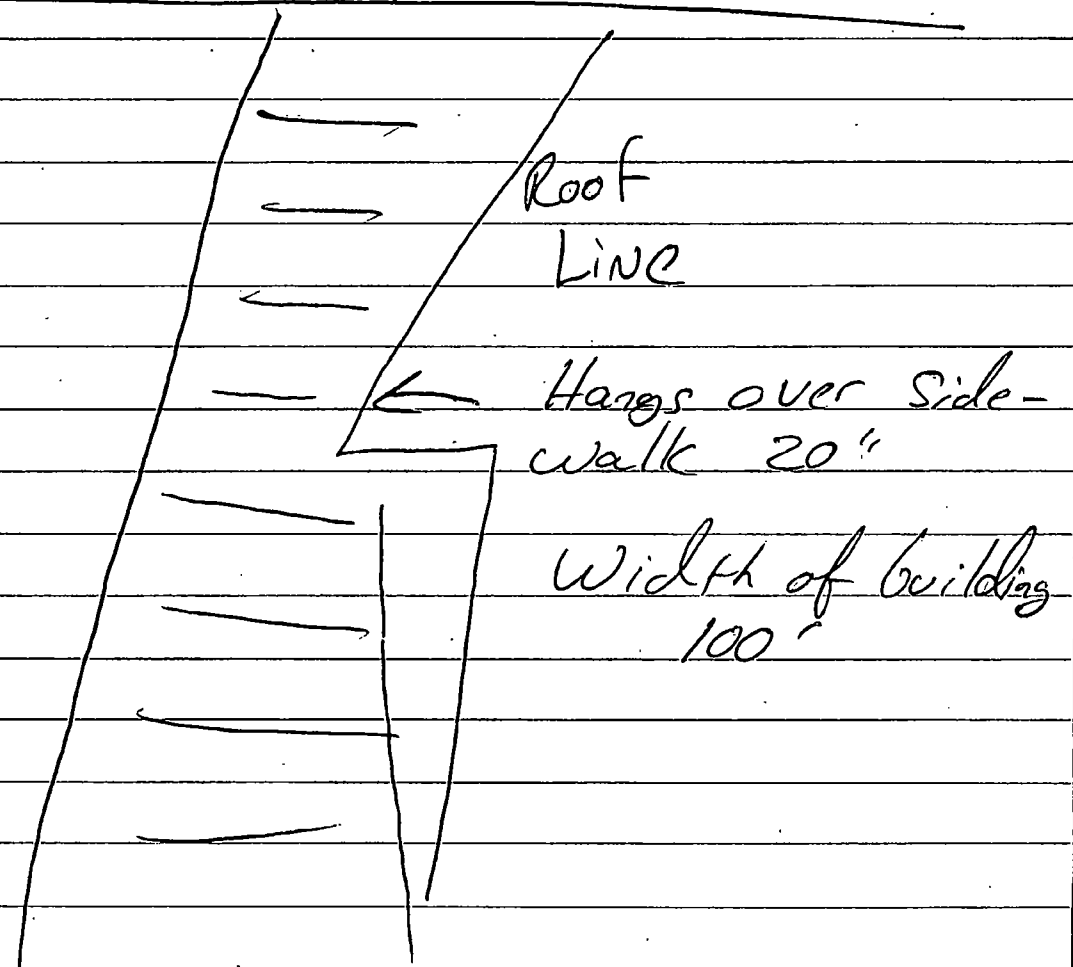 Roof
Line
Hangs over side-
walk 20"
Width of building
100'